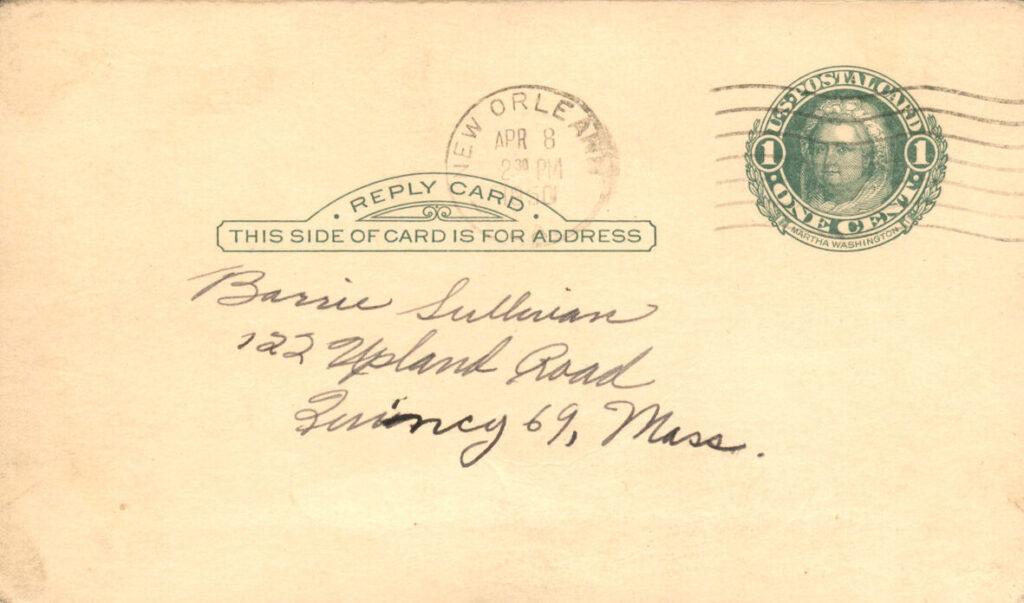 NEW ORLEANS
APR 8
2 30 PM
1950
U.S. POSTAL CARD
1 1
ONE CENT
MARTHA WASHINGTON
· REPLY CARD ·
THIS SIDE OF CARD IS FOR ADDRESS
Barrie Sullivan
122 Upland Road
Quincy 69, Mass.